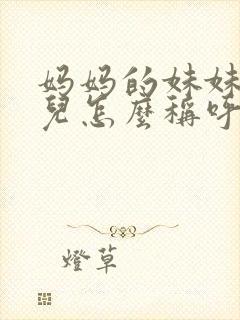 妈妈的妹妹
兒怎麼稱呼
燈草